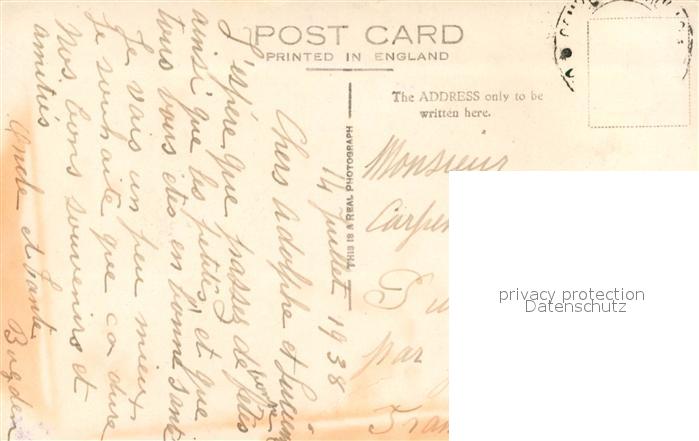 POST CARD
PRINTED IN ENGLAND
The ADDRESS only to be
written here.
THIS IS A REAL PHOTOGRAPH
14 Juillet 1938
Chers Adolphe et
J'espère que passez de fêtes
ainsi que les petits, et que
tous vous êtes en bonne santé
Je vais un peu mieux,
Je souhaite que ça dure
Nos bons souvenirs et
amitiés
Oncle et tante
Monsieur
par
privacy protection
Datenschutz